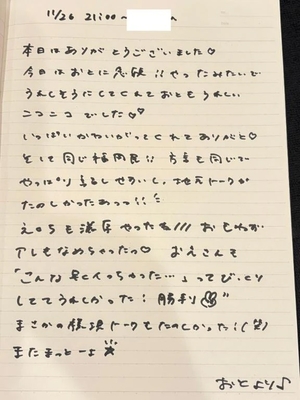 11/26 21:00〜
本日はありがとうございました♡
今日はおとに
うれしそうにしてくれておともうれしい
ニコニコでした♡
いっぱいかわいがってくれてありがと♡
そして同じ福岡民!! 方言も同じで
やっぱり しやすいし、地元トークが
たのしかったあっ!!
も やったね/// おもわず
もなめちゃったっ♡ おえさんも
「こんな早くイっちゃった…」ってびっくり
しててうれしかった! 勝利
まさかの トークもたのしかった!(笑)
またまっとーよ☆
おとより♪